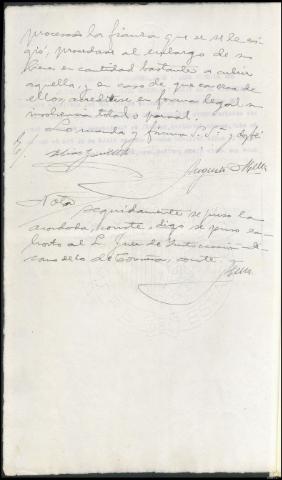 procesado la fianza que se le exi
gió, procedase al embargo de sus
bienes en cantidad bastante a cubrir
aquella, y en caso de que carezca de
ellos, acreditese en forma legal su
insolvencia total o parcial.
Lo manda y firma S.Sª doy fé
Nota
Seguidamente se puso lo
acordado, conste, digo se puso ex
horto al Sr. Juez de Instrucción
de Coruña, conste